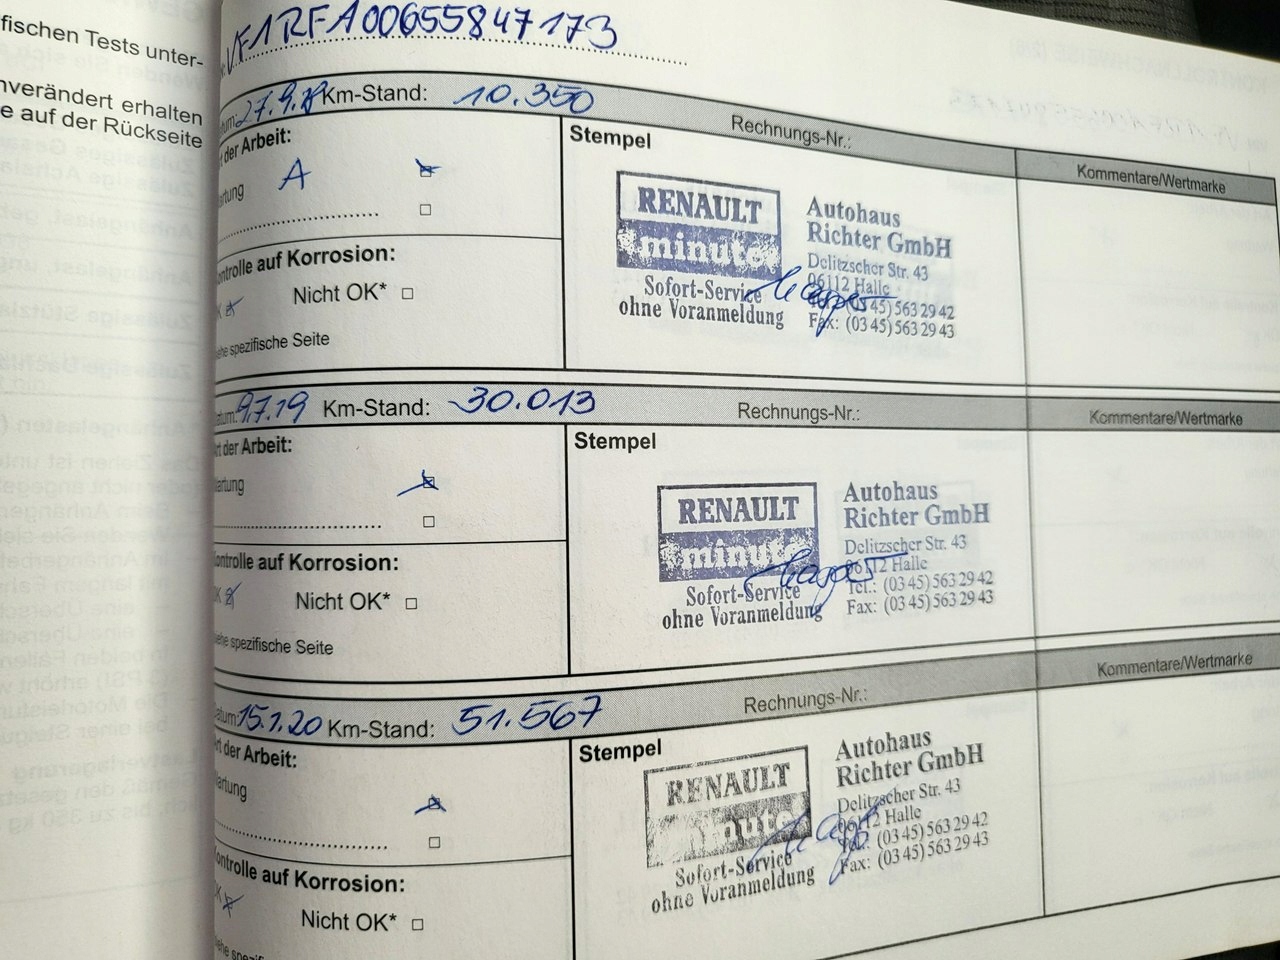 fischen Tests unter-
nverändert erhalten
e auf der Rückseite
VF1RFA00655847173
27.9.18 Km-Stand: 10.350 Rechnungs-Nr.: Kommentare/Wertmarke
der Arbeit: Stempel
artung A
ontrolle auf Korrosion:
Nicht OK*
ehe spezifische Seite
RENAULT
minute
Sofort-Service
ohne Voranmeldung
Autohaus
Richter GmbH
Delitzscher Str. 43
06112 Halle
Tel.: (03 45) 563 29 42
Fax: (03 45) 563 29 43
atum: 9.7.19 Km-Stand: 30.013 Rechnungs-Nr.: Kommentare/Wertmarke
rt der Arbeit: Stempel
artung
ontrolle auf Korrosion:
OK Nicht OK*
ehe spezifische Seite
RENAULT
minute
Sofort-Service
ohne Voranmeldung
Autohaus
Richter GmbH
Delitzscher Str. 43
06112 Halle
Tel.: (03 45) 563 29 42
Fax: (03 45) 563 29 43
atum: 15.1.20 Km-Stand: 51.567 Rechnungs-Nr.: Kommentare/Wertmarke
rt der Arbeit: Stempel
artung
ontrolle auf Korrosion:
Nicht OK*
RENAULT
minute
Sofort-Service
ohne Voranmeldung
Autohaus
Richter GmbH
Delitzscher Str. 43
06112 Halle
Tel.: (03 45) 563 29 42
Fax: (03 45) 563 29 43